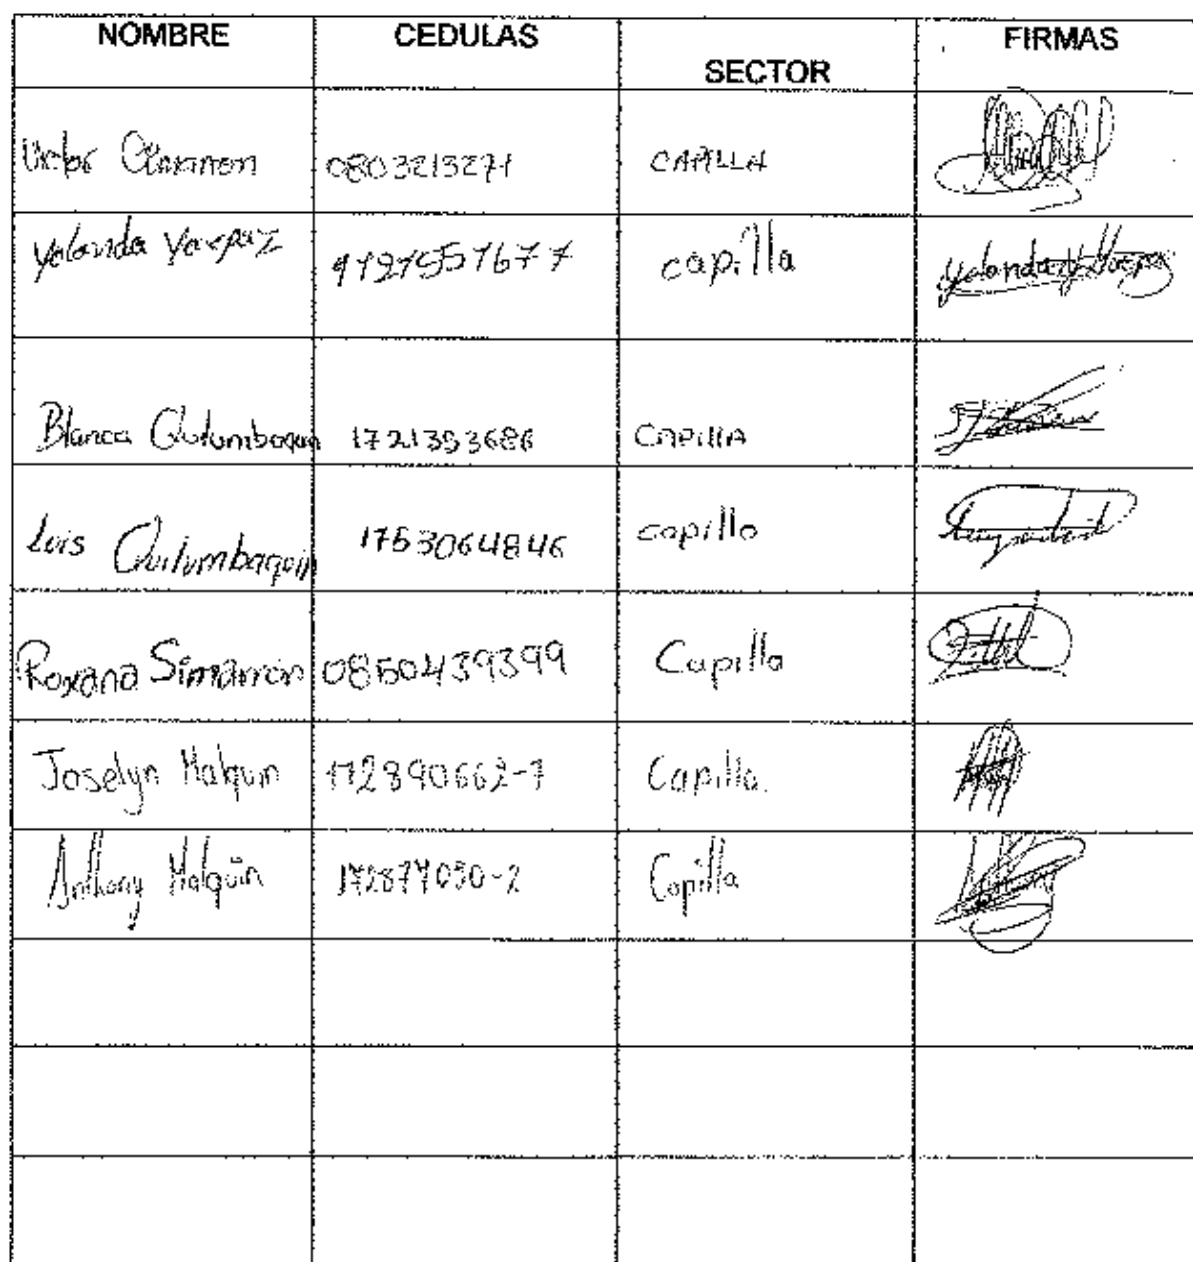 NOMBRE CEDULAS SECTOR FIRMAS
0803213271 CAPILLA
Yolanda Yaepaz capilla Yolanda Y Yaepaz
Blanca Quilumbaquin 1721353686 CAPILLA
Luis Quilumbaquin 1753064846 capilla
Roxana Simarron 0850439399 Capilla
Joselyn Malquin 172890662-7 Capilla.
Anthony Malquin Capilla